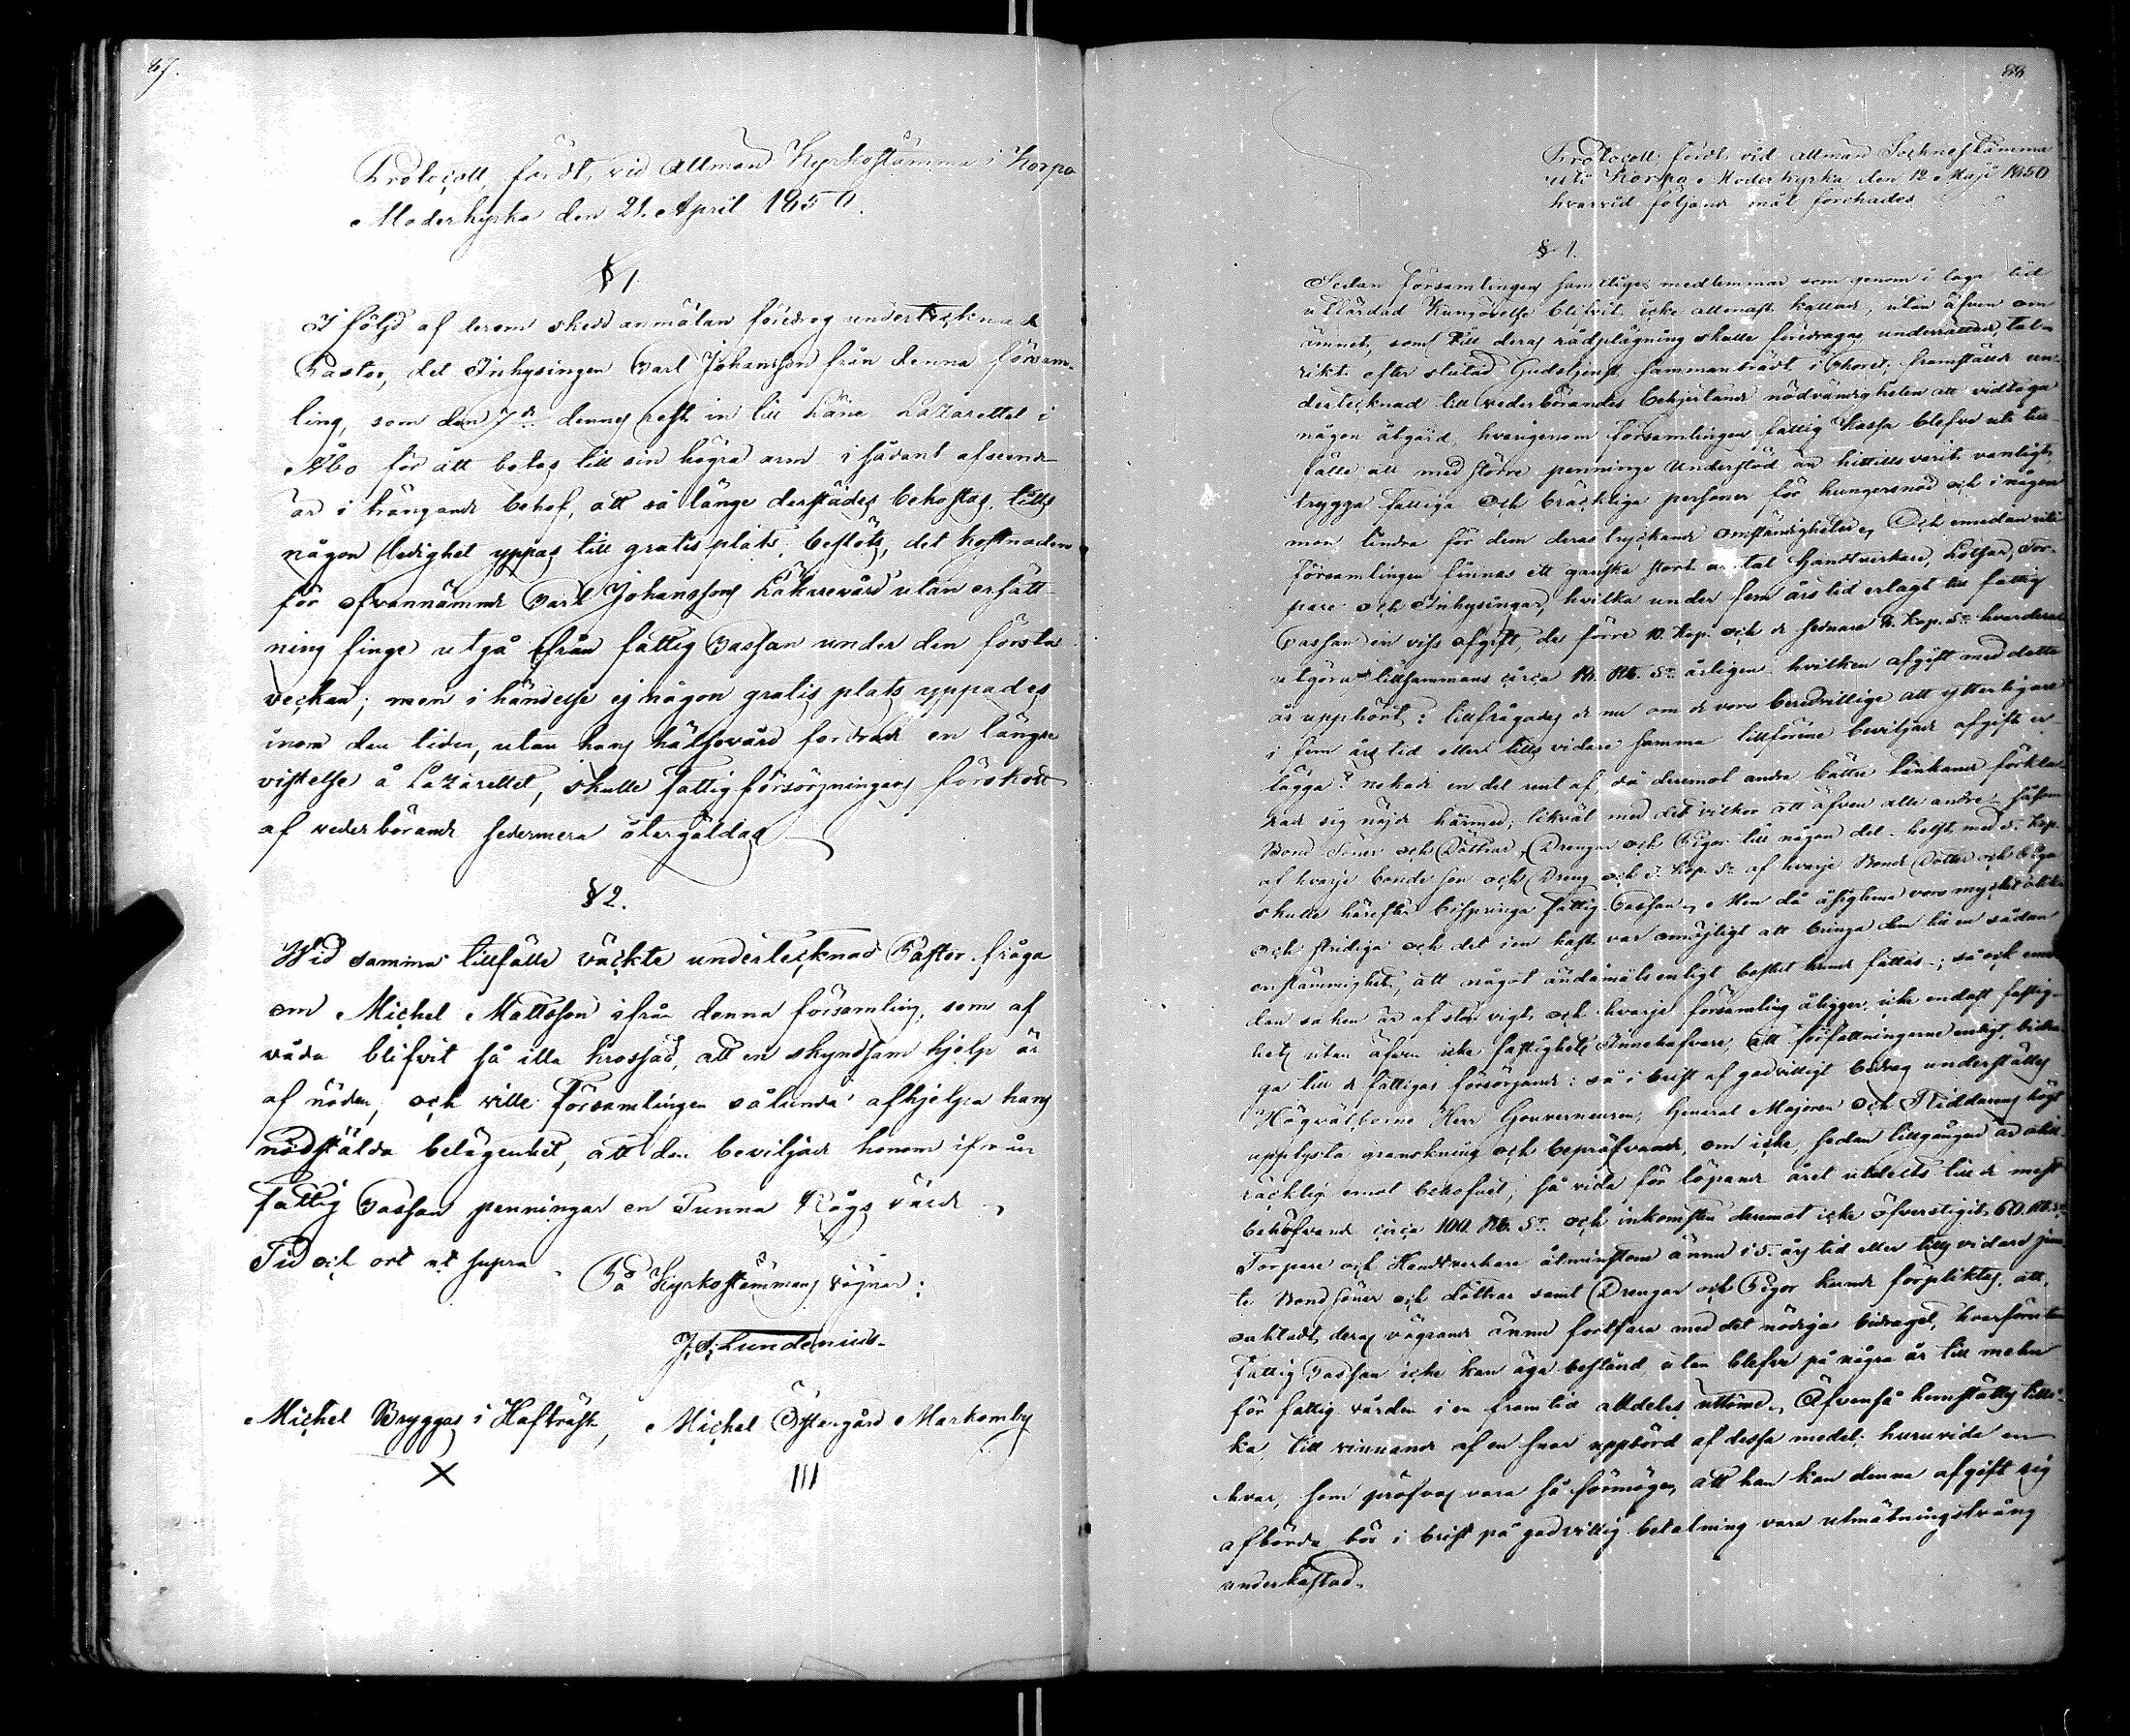 87.
Protocoll, fördt, vid allmän Kyrkostämma i Korpo
Moderkyrka den 21. April 1850.
§ 1.
I följd af derom skedd anmälan föredrog undertecknade
Pastor, det Inhysingen Carl Johansson från denna försam-
ling, som den 7de dennes rest in till Läne Lazarettet i
Åbo för att botas till sin högra arm i sådant afseende
är i trängande behof, att så länge derstädes bekostas, tills
någon ledighet yppas till gratis plats; beslöts, det kostnaden
för ofvannämnde Carl Johanssons Läkarevård utan ersätt-
ning finge utgå ifrån fattig Cassan under den första
veckan; men i händelse ej någon gratis plats yppades
inom den tiden, utan hans hälsovård fordrade en längre
vistelse å Lazarettet, skulle fattigförsörjningens förskott
af vederbörande sedermera återgäldas
§ 2.
Wid samma tillfälle väckte undertecknad Pastor fråga
om Michel Mattsson ifrån denna församling, som af
våda blifvit så illa krossad, att en skyndsam hjelp är
af nöden, och ville Församlingen sålunda afhjelpa hans
nödstälda belägenhet, att den beviljade honom ifrån
fattig Cassan penningar en Tunna Rågs värde
Tid och ort ut supra
På Kyrkostämmans vägnar:
J. S. Lundenius
Michel Bryggas i Hafträsk, Michel Östergård Markomby
X III
88
Protocoll, fördt, vid allmän Sochnestämma
uti Korpo Moderkyrka den 12 Maji 1850
hvarvid följande mål förehades
§ 1.
Sedan Församlingens samtliga medlemmar som genom i laga tid
utfärdad Kungörelse blifvit icke allenast kallade, utan äfven om
ämnet, som till deras rådplägning skulle föredragas underrättade, tal-
rikt efter slutad Gudstjenst, sammanträdt i Choret; framställde un-
dertecknad till vederbörandes behjertande nödvändigheten att vidtaga
någon åtgärd, hvarigenom församlingens fattig Kassa blefve uti till-
fälle att med större penninge Understöd än hittills varit vanligt,
trygga fattiga och bräckliga personer för hungersnöd och i någon
mon lindra för dem deras tryckande omständigheter, Och emedan uti
församlingen finnas ett ganska stort antal Handtverkare, Lotsar, Tor-
pare och Inhysingar, hvilka under fem års tid erlagt till fattig
Cassan en viss afgift, de förre 10. Kop. och de sednare Kop. Sr hvardera
utgörande tillsammans circa Rb. Sr årligen hvilken afgift med detta
år upphört: tillfrågades de nu om de voro beredvillige att ytterligare
i fem års tid eller tills vidare samma tillförene beviljade afgift er-
lägga? nekade en del rent af, då deremot andra bättre tänkande förkla-
rade sig nöjde härmed, likväl med det vilkor att äfven alla andra såsom
Bond Söner och Döttrar, Drengar och Pigor till någon del helst med 5. Kop.
af hvarje bonde son och Dreng och 3. Kop. Sr af hvarje Bonde Dotter och Piga
skulle härefter bispringa fattig Cassan. Men då åsigterna voro mycket olika
och stridiga och det i en hast var omöjligt att bringa dem till en sådan
enstämmighet, att något ändamålsenligt beslut kunde fattas; så och eme-
dan saken är af stor vigt, och hvarje församling åligger, icke endast fastig-
hets utan äfven icke fastighets Innehafvare, att författningarne enligt, bidra-
ga till de fattigas försörjande: så i brist af godvilligt bidrag underställes
Högvälborne Herr Gouverneuren, General Majoren och Riddarens högt
upplysta granskning och bepröfvande, om icke, sedan tillgången är otill-
räcklig emot behofvet; så vida för löpande året utdelts till de mest
behöfvande circa 100. Rb. Sr och inkomsten deremot icke öfverstigit 60. Rb. Sr
Torpare och Handtverkare åtminstone ännu i 5. års tid eller tills vidare jem-
te Bondsöner och Döttrar samt Drengar och Pigor kunde förpliktas, att,
oaktadt, deras vägrande ännu fortfara med det nödiga bidraget, hvarförutan
Fattig Cassan icke kan äga bestånd, utan blefve på några år till mehn
för fattig vården i en framtid alldeles uttömd. Äfvenså hemställes tilli-
ka, till vinnande af en snar uppbörd af dessa medel, huruvida en
hvar, som pröfvas vara så förmögen, att han kan denna afgift sig
afbörda bör i brist på godvillig betalning vara utmätningstvång
underkastad.